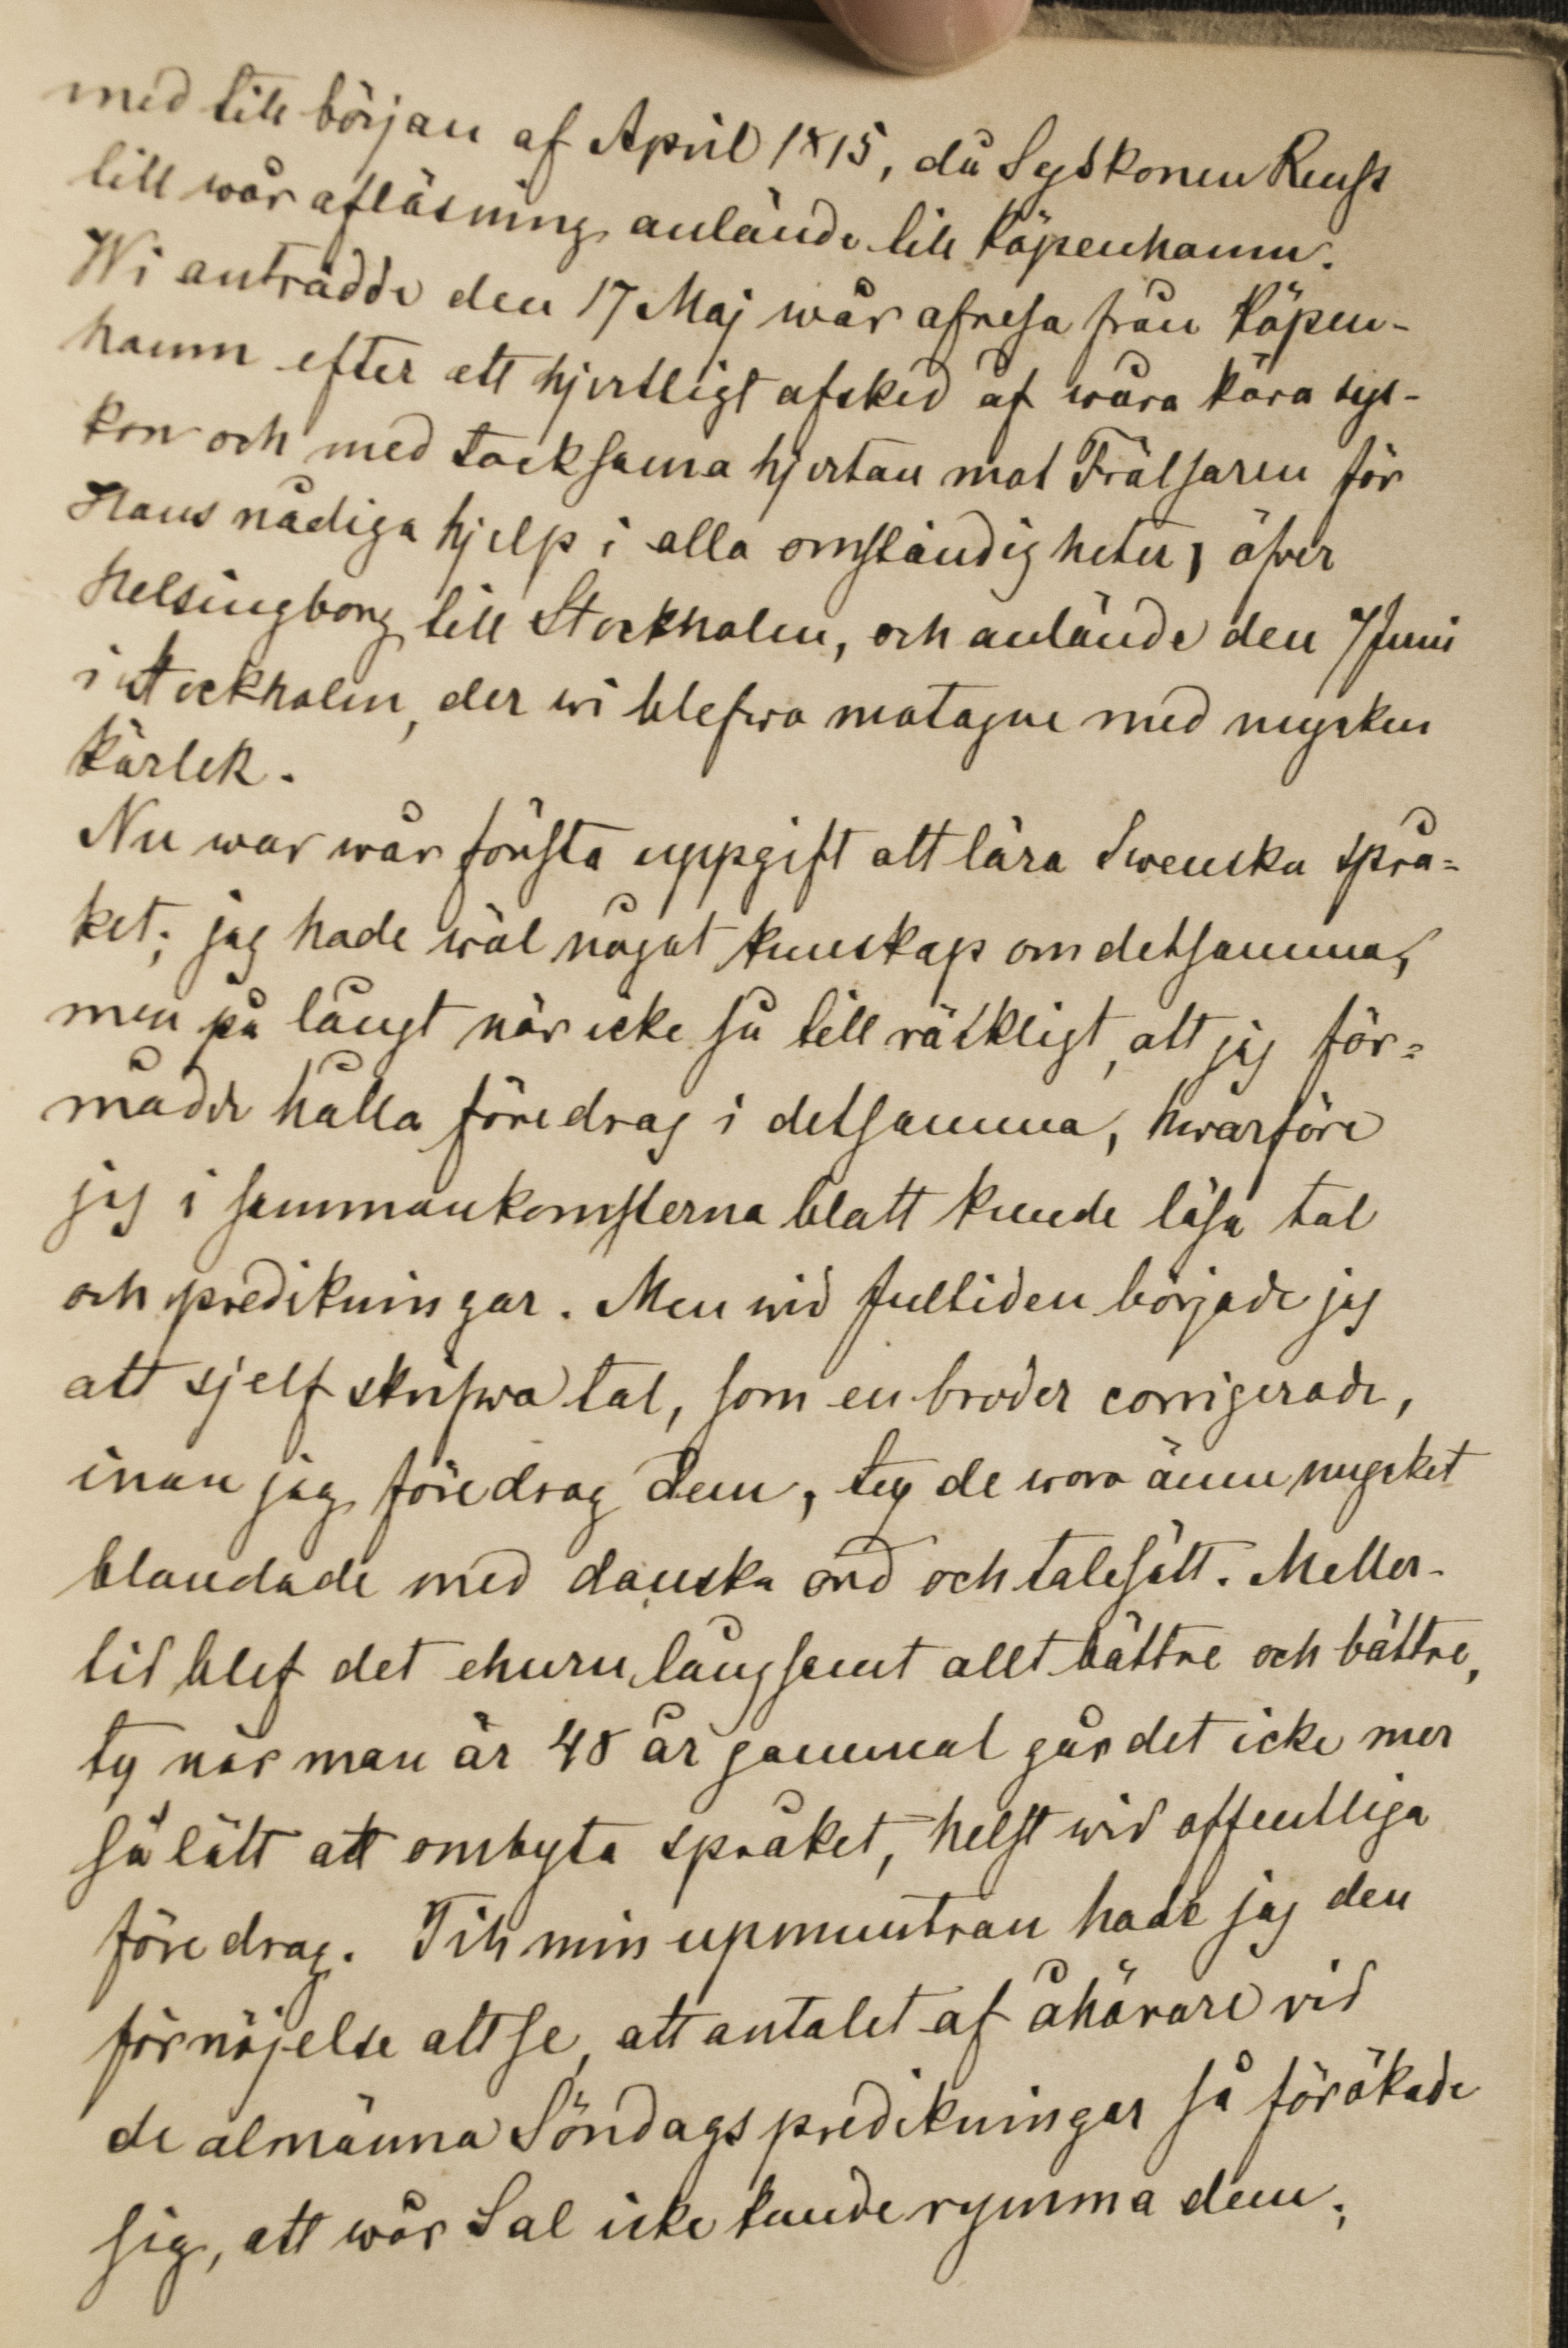 med till början af April 1815, då Syskonen Reuss
till wår aflösning anlände till Köpenhamn.
Wi anträdde den 17 Maj wår afresa från Köpen-
hamn efter ett hjertligt afsked af wåra kära sys-
kon och med tacksama hjertan mot Frälsaren för
Hans nådiga hjelp i alla omständigheter, öfver
Helsingborg till Stockholm, och anlände den 7 Juni
i Stockholm, der wi blefwo motagne med mycken
kärlek.
Nu war wår första uppgift att lära Swenska språ=
ket; jag hade wäl något kunskap om detsamma,
men på långt när icke så till räckligt, att jag för=
mådde hålla föredrag i detsamma, hwarföre
jag i sammankomsterna blott kunde läsa tal
och predikningar. Men wid Jultiden började jag
att sjelf skrifwa tal, som en broder corrigerade,
inan jag föredrog dem, ty de woro ännu mycket
blandade med danska ord och talesätt. Meller-
tid blef det ehuru långsamt allt bättre och bättre,
ty när man är 48 år gammal går det icke mer
så lätt att ombyta språket, helst wid offentliga
föredrag. Till min upmuntran hade jag den
förnöjelse att se, att antalet af åhörare vid
de almänna Söndagspredikningar så förökade
sig, att wår Sal icke kunde rymma dem;